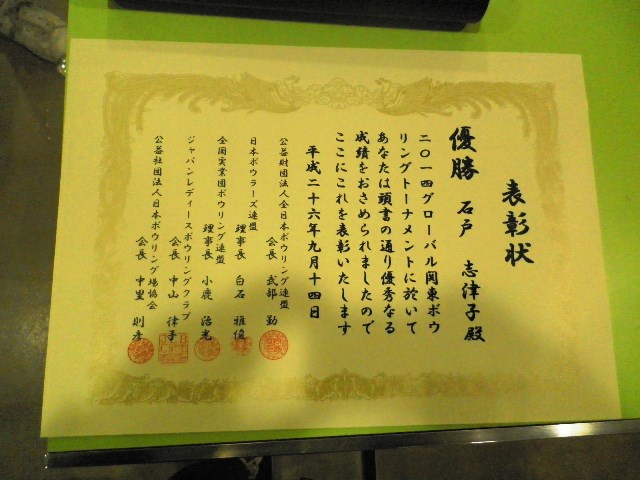 表彰状
優勝 石戸 志津子殿
二〇一四グローバル関東ボウ
リングトーナメントに於いて
あなたは頭書の通り優秀なる
成績をおさめられましたので
ここにこれを表彰いたします
平成二十六年九月十四日
公益財団法人全日本ボウリング連盟
会長 武部 勤
日本ボウラーズ連盟
理事長 白石 雅俊
全国実業団ボウリング連盟
理事長 小鹿 浩光
ジャパンレディースボウリングクラブ
会長 中山 律子
公益社団法人日本ボウリング場協会
会長 中里 則彦